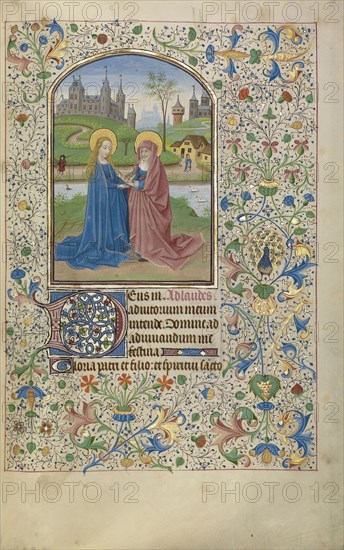 Eus in. Ad laudes
adiutorium meum
intende. Domine ad
adiuuandum me
festina
Gloria patri et filio: et spiritui sancto
PHOTO 12